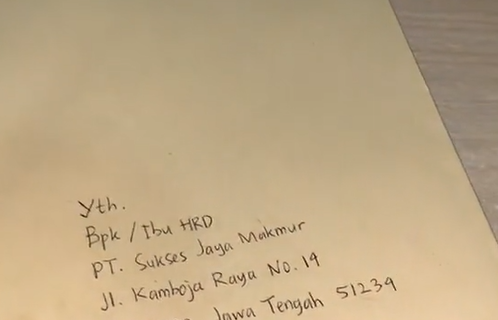 Yth.
Bpk / Ibu HRD
PT. Sukses Jaya Makmur
Jl. Kamboja Raya No. 14
Jawa Tengah 51234